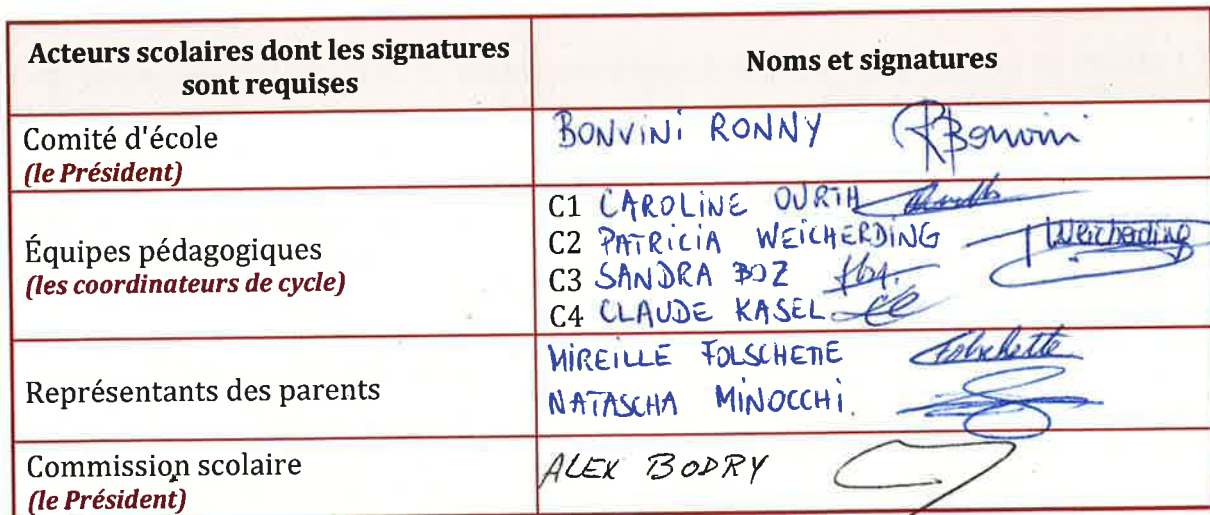 Acteurs scolaires dont les signatures
sont requises
Noms et signatures
Comité d'école
(le Président)
BONVINI RONNY RBonvini
Équipes pédagogiques
(les coordinateurs de cycle)
C1 CAROLINE OURTH
C2 PATRICIA WEICHERDING Weicherding
C3 SANDRA BOZ
C4 CLAUDE KASEL
Représentants des parents
MIREILLE FOLSCHETTE Folschette
NATASCHA MINOCCHI.
Commission scolaire
(le Président)
ALEX BODRY